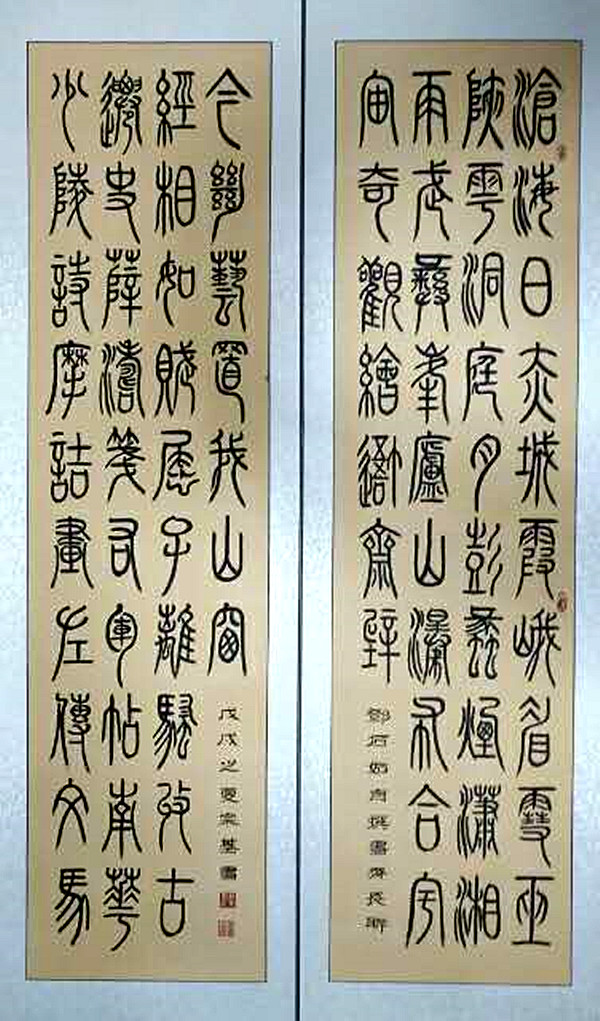 滄海日赤城霞峨眉雪巫
陜雲洞庭月彭蠡煙瀟湘
雨武彝峯廬山瀑布合宇
宙奇觀繪吾齋壁
鄧石如自撰書齋長聯
少陵詩摩詰畫左傳文馬
遷史薛濤箋右軍帖南華
經相如賦屈子離騷收古
今絕藝置我山窗
戊戌之夏宗基書